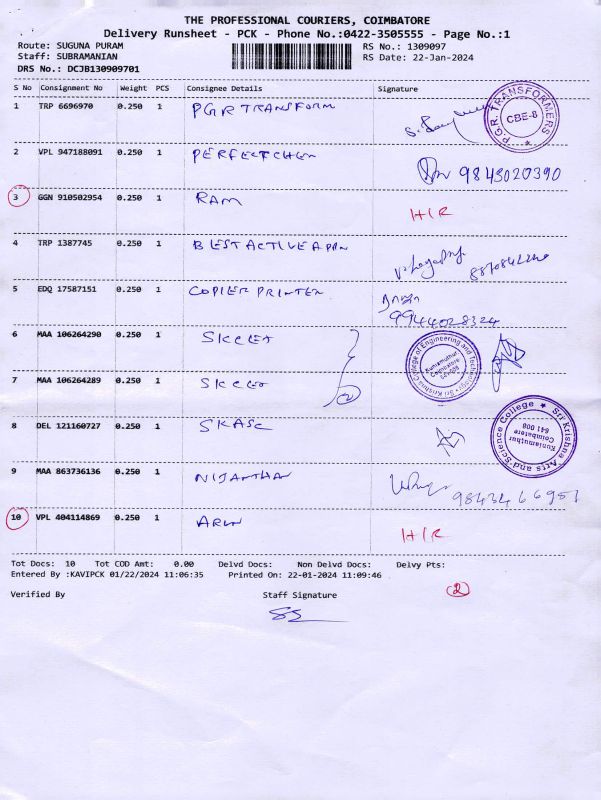 THE PROFESSIONAL COURIERS, COIMBATORE
Delivery Runsheet - PCK - Phone No.:0422-3505555 - Page No.:1
Route: SUGUNA PURAM RS No.: 1309097
Staff: SUBRAMANIAN RS Date: 22-Jan-2024
DRS No.: DCJB130909701
S No Consignment No Weight PCS Consignee Details Signature
1 TRP 6696970 0.250 1 PGR TRANSFORM
P.G.R. TRANSFORMERS CBE-8
2 VPL 947188091 0.250 1 PERFECTCHEM 9843020390
3 GGN 910502954 0.250 1 RAM H/R
4 TRP 1387745 0.250 1 BLEST ACTIVE APPN
5 EDQ 17587151 0.250 1 COPIER PRINTER
9944028324
6 MAA 106264290 0.250 1 SKCCET
Sri Krishna College of Engineering and Technology
Kuniamuthur
Coimbatore
7 MAA 106264289 0.250 1 SKCCET 2
8 DEL 121160727 0.250 1 SKASC
Sri Krishna Arts and Science College
Kuniamuthur
Coimbatore
641 008
9 MAA 863736136 0.250 1 NIJANTHAN
9843466951
10 VPL 404114869 0.250 1 ARUN H/R
Tot Docs: 10 Tot COD Amt: 0.00 Delvd Docs: Non Delvd Docs: Delvy Pts:
Entered By :KAVIPCK 01/22/2024 11:06:35 Printed On: 22-01-2024 11:09:46
2
Verified By Staff Signature